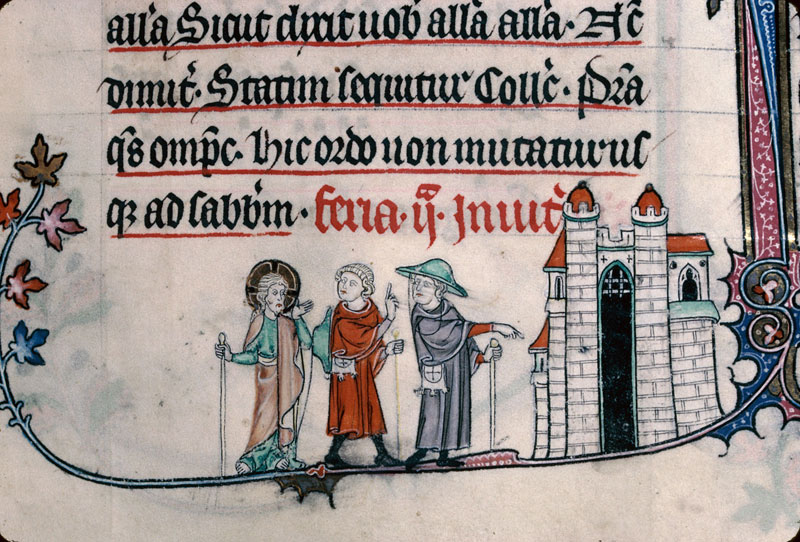 all'a Sicut dixit uob' all'a all'a. Ac̄
dimit'. Statim sequitur Coll'c. Pr̄a
q̄s omp̄c. Hic ordo non mutatur us
q̨ ad sabb'm. feria. ij. Inuit'